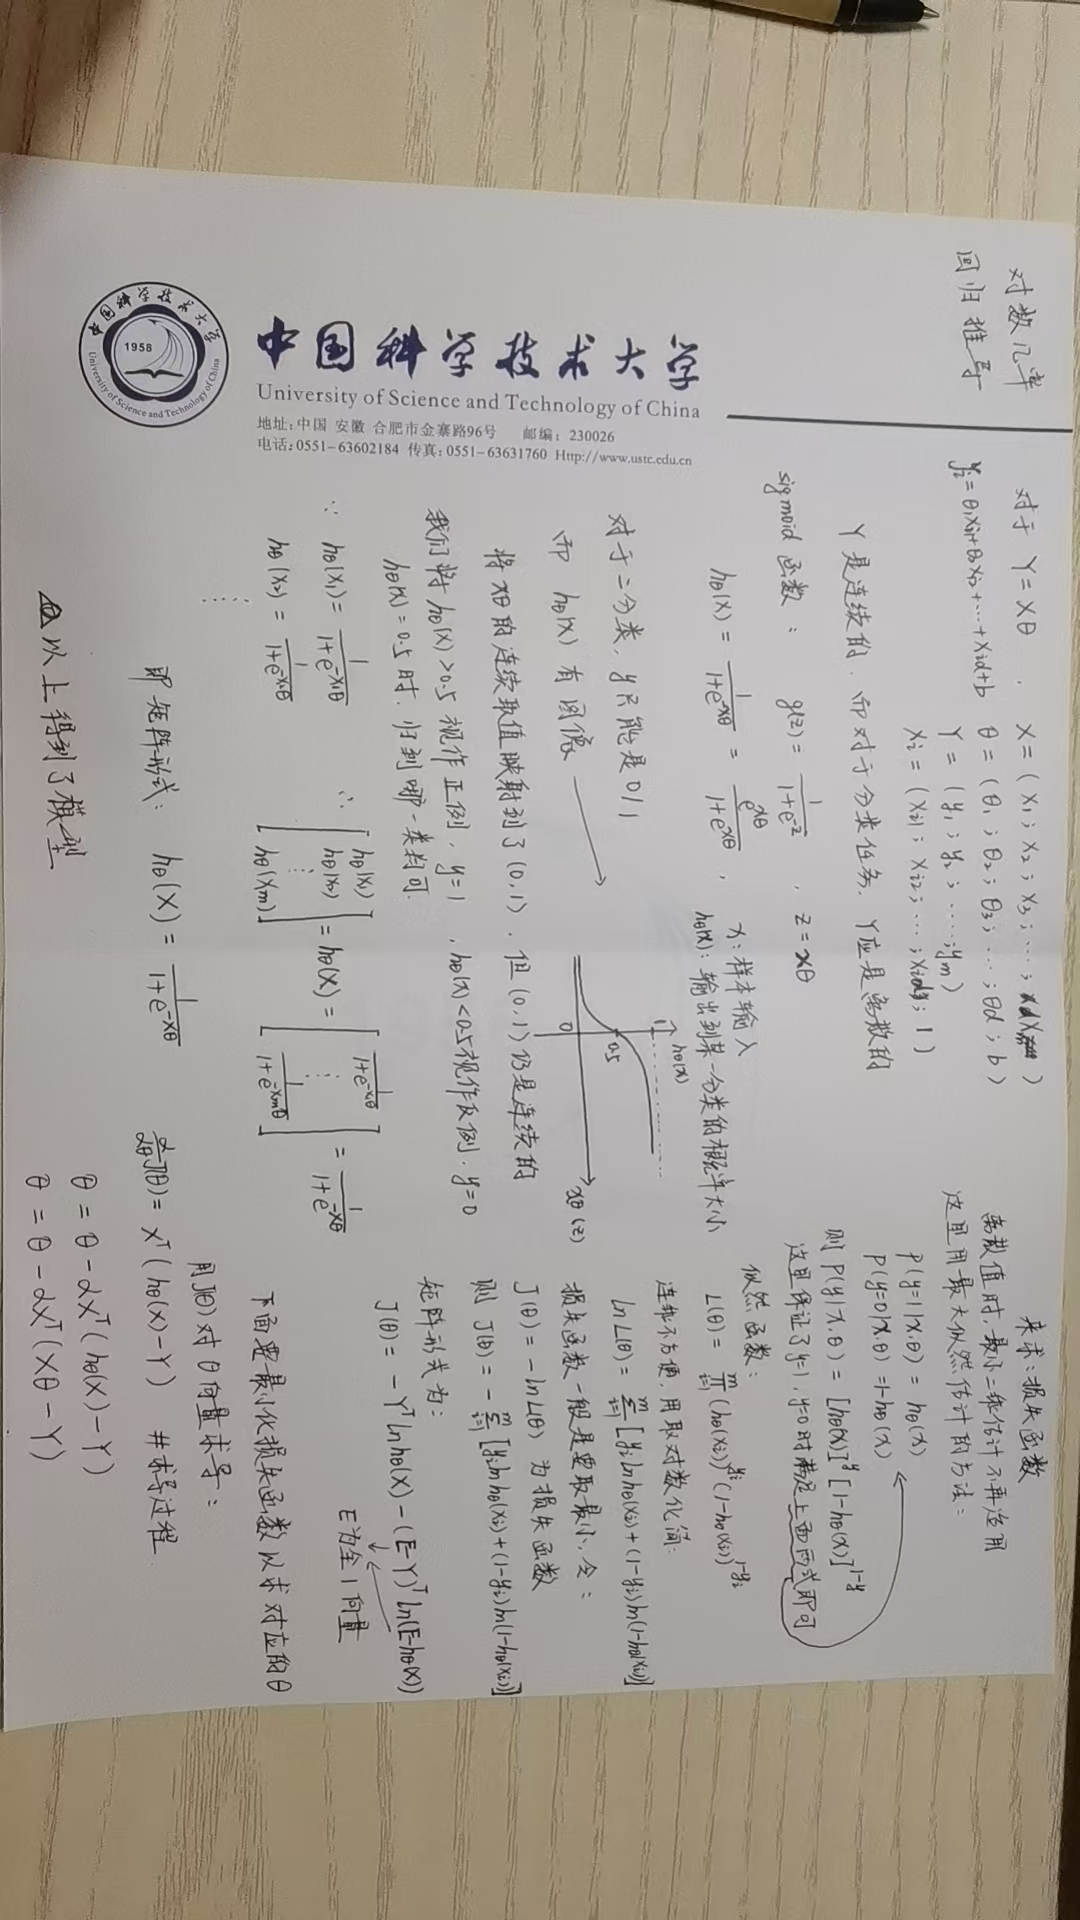 对数几率
回归推导
中国科学技术大学
University of Science and Technology of China
地址:中国 安徽 合肥市金寨路96号 邮编:230026
电话:0551-63602184 传真:0551-63631760 Http://www.ustc.edu.cn
1958
中国科学技术大学
University of Science and Technology of China
对于 Y = Xθ , X = (x₁; x₂; x₃; …; )
yᵢ = θ₁xᵢ₁+θ₂xᵢ₂+…+xid+b θ = (θ₁; θ₂; θ₃; …; θd; b)
Y = (y₁; y₂; …; ym)
xᵢ = (xᵢ₁; xᵢ₂; …; xid; 1)
Y 是连续的, 而对于分类任务, Y应是离散的
sigmoid 函数: g(z) = 1/(1+e^-z) , z = xθ
hθ(x) = 1/(1+e^-xθ) = e^xθ/(1+e^xθ) ,
x: 样本输入
hθ(x): 输出到某一分类的概率大小
对于二分类, y只能是0/1
而 hθ(x) 有图像 →
hθ(x)
1
0.5
0
xθ (z)
将xθ的连续取值映射到了(0,1), 但(0,1)仍是连续的
我们将 hθ(x)>0.5 视作正例, y=1, hθ(x)<0.5视作反例, y=0
hθ(x)=0.5时, 归到哪一类均可.
∵ hθ(x₁) = 1/(1+e^-x₁θ)
hθ(x₂) = 1/(1+e^-x₂θ)
……
∴ [hθ(x₁) hθ(x₂) ⋮ hθ(xm)] = hθ(X) = [1/(1+e^-x₁θ) ⋮ 1/(1+e^-xmθ)] = 1/(1+e^-Xθ)
即矩阵形式: hθ(X) = 1/(1+e^-Xθ)
以上得到了模型
来求: 损失函数
离散值时, 最小二乘估计不再适用
这里用最大似然估计的方法:
P(y=1|x,θ) = hθ(x)
P(y=0|x,θ) = 1-hθ(x)
则 P(y|x,θ) = [hθ(x)]^y [1-hθ(x)]^1-y
这里保证了y=1, y=0时满足上面两式即可
似然函数:
L(θ) = ∏ᵢ₌₁ᵐ (hθ(xᵢ))^yᵢ (1-hθ(xᵢ))^1-yᵢ
连乘不方便, 用取对数化简:
lnL(θ) = Σᵢ₌₁ᵐ [yᵢlnhθ(xᵢ)+(1-yᵢ)ln(1-hθ(xᵢ))]
损失函数一般是要取最小, 令:
J(θ) = -lnL(θ) 为损失函数
则 J(θ) = -Σᵢ₌₁ᵐ [yᵢlnhθ(xᵢ)+(1-yᵢ)ln(1-hθ(xᵢ))]
矩阵形式为:
J(θ) = -Yᵀlnhθ(X) - (E-Y)ᵀln(E-hθ(X))
E为全1向量
下面要最小化损失函数以求对应的θ
用J(θ)对θ向量求导:
d/dθ J(θ) = Xᵀ(hθ(X)-Y) #求导过程
θ = θ - αXᵀ(hθ(X)-Y)
θ = θ - αXᵀ(Xθ-Y)